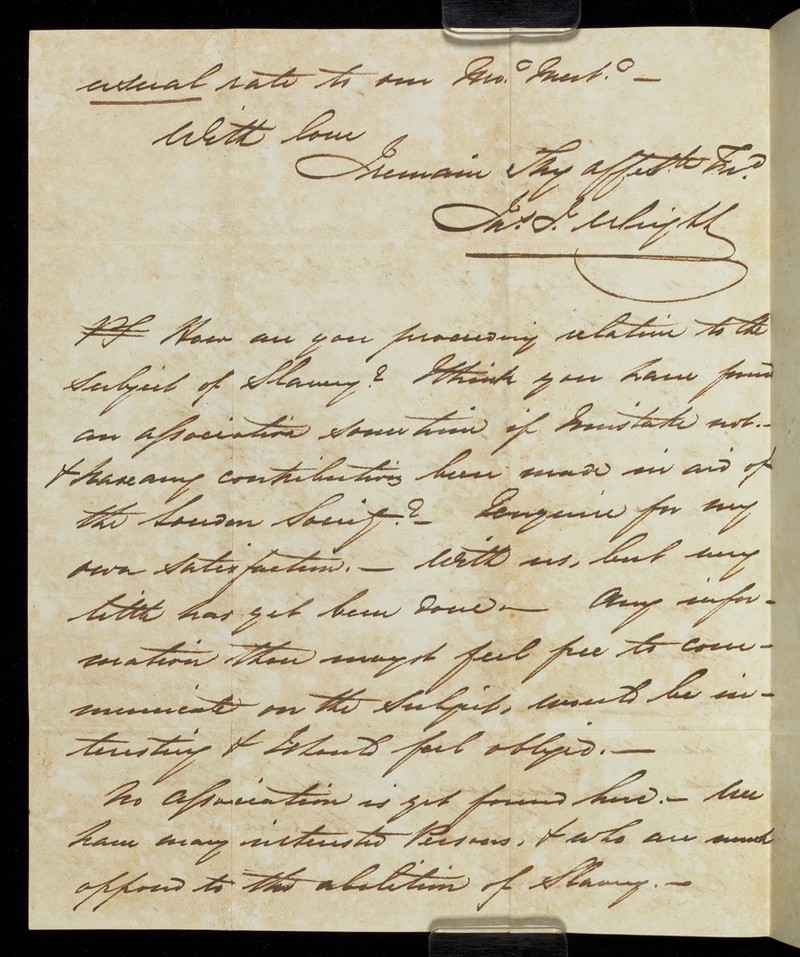 usual rate to our Mo.o Meet.o —
With love
I remain Thy affect.te Fr.d
Jas. J. Wright
PS How are you proceeding relative to the
Subject of Slavery? I think you have formd
an association sometime if I mistake not.-
& have any contributions been made in aid of
the London Society? - I enquire for my
own satisfaction. — With us, but very
little has yet been done — Any infor-
mation thou mayst feel free to com-
municate on the subject, would be in-
teresting & I should feel obliged. —
No association is yet formd here. — We
have many interested Persons, & who are much
opposed to the abolition of Slavery. —